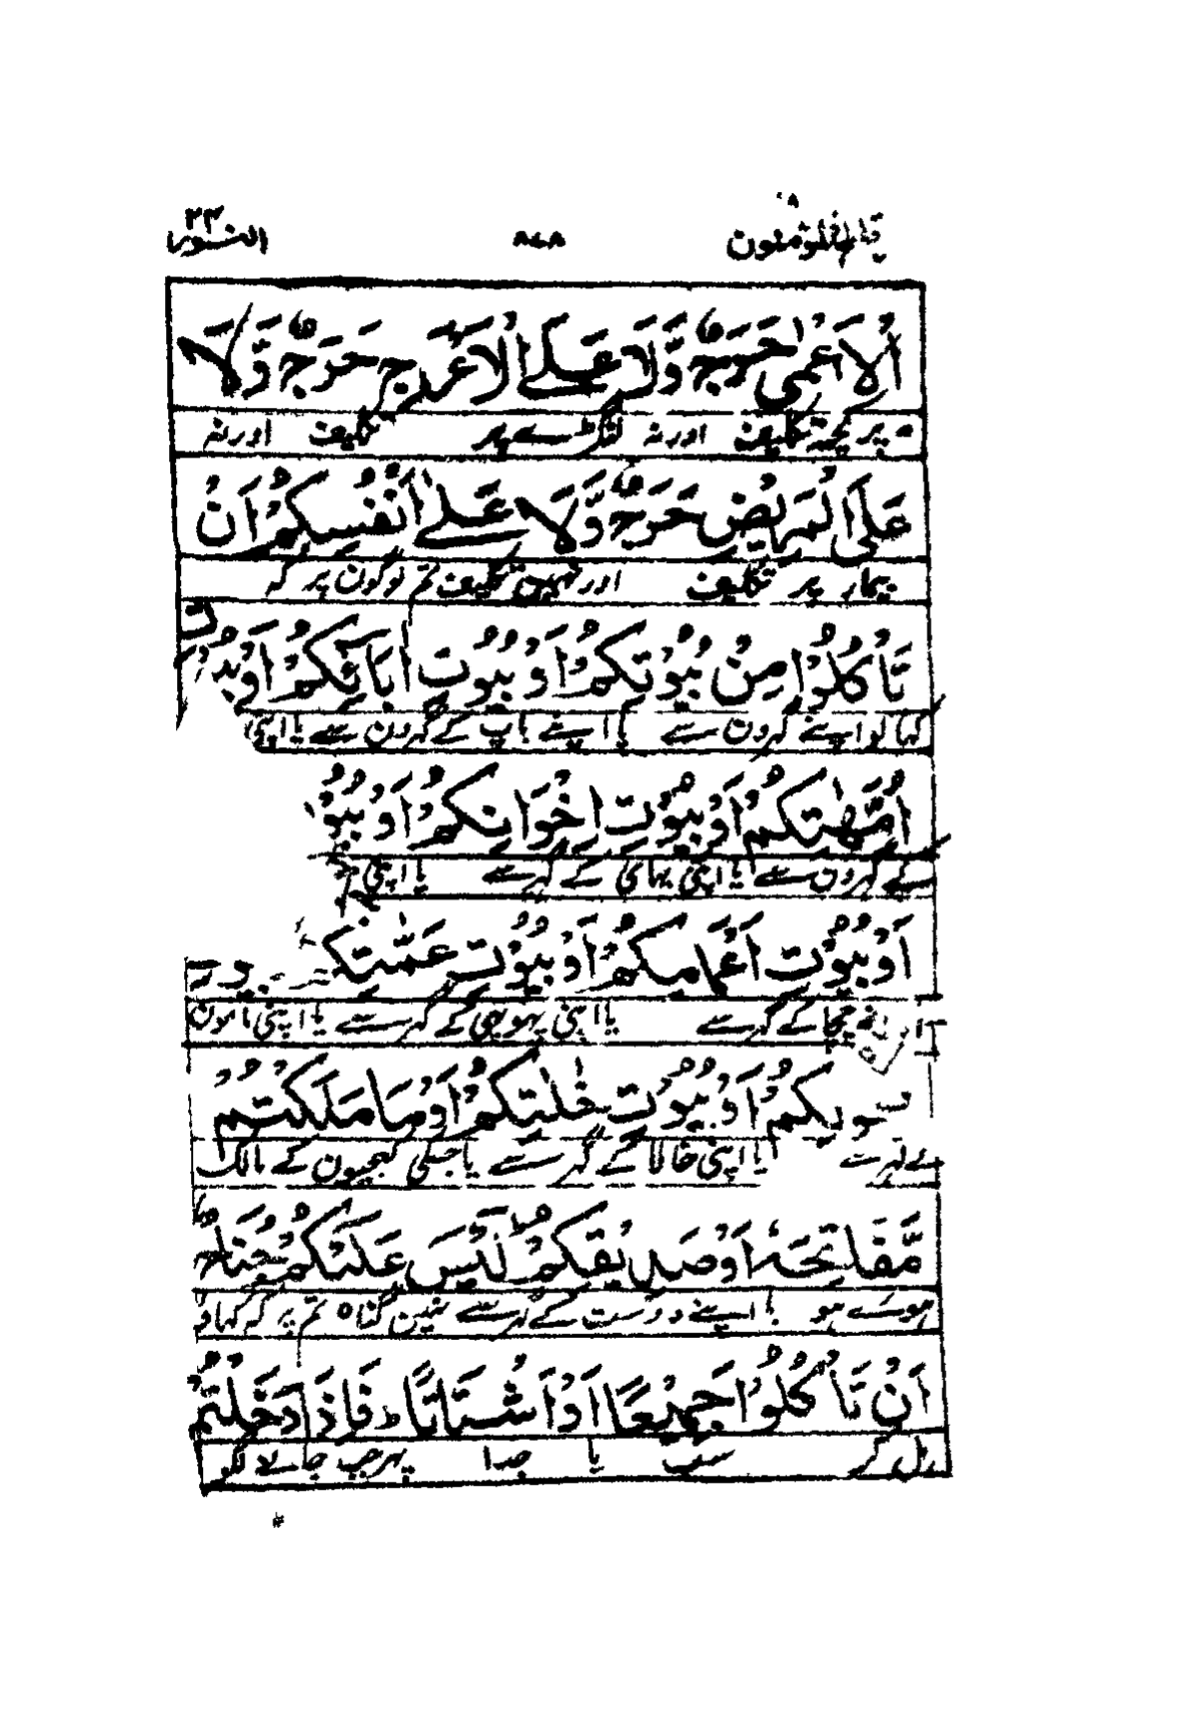 قد افلح المؤمنون ۱۸ ۸۷۸ النور ۲۴
الْاَعْمٰى حَرَجٌ وَّلَا عَلَى الْاَعْرَجِ حَرَجٌ وَّلَا
پر کچھ تکلیف اور نہ لنگڑے پر تکلیف اور نہ
عَلَى الْمَرِيْضِ حَرَجٌ وَّلَا عَلٰٓى اَنْفُسِكُمْ اَنْ
بیمار پر تکلیف اور نہین تکلیف تم لوگون پر کہ
تَاْكُلُوْا مِنْ بُيُوْتِكُمْ اَوْ بُيُوْتِ اٰبَآئِكُمْ اَوْ
کہا لو اپنے گہرون سے یا اپنے باپ کے گہرون سے یا اپنی
اُمَّهٰتِكُمْ اَوْ بُيُوْتِ اِخْوَانِكُمْ اَوْ
کے گہرون سے یا اپنی بہائی کے گہر سے یا اپنی
اَوْ بُيُوْتِ اَعْمَامِكُمْ اَوْ بُيُوْتِ عَمّٰتِكُ
چچا کے گہر سے یا اپنی پہوپہی کے گہر سے یا اپنی مامون
اَوْ بُيُوْتِ خٰلٰتِكُمْ اَوْ مَا مَلَكْتُمْ
گہر سے یا اپنی خالا کے گہر سے یا جسکی کنجیون کے مالک
مَّفَاتِحَهٗٓ اَوْ صَدِيْقِكُمْ ؕ لَيْسَ عَلَيْكُمْ جُنَاحٌ
ہوے ہو یا اپنے دوست کے گہر سے نہین گناہ تم پر کہ کہاؤ
اَنْ تَاْكُلُوْا جَمِيْعًا اَوْ اَشْتَاتًا ؕ فَاِذَا دَخَلْتُمْ
مل کر سب یا جدا پہر جب جانے لگو